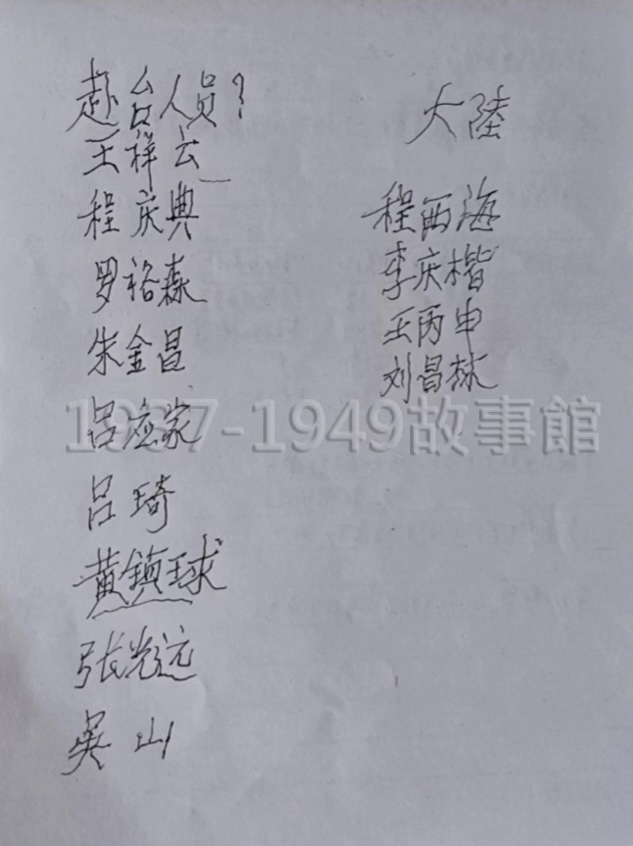 赴台人员？
王祥云
程庆典
罗裕森
朱金昌
吕应家
吕琦
黄镇球
张光远
吴山
大陸
程西海
李庆楷
王丙申
刘昌林
1937-1949故事館